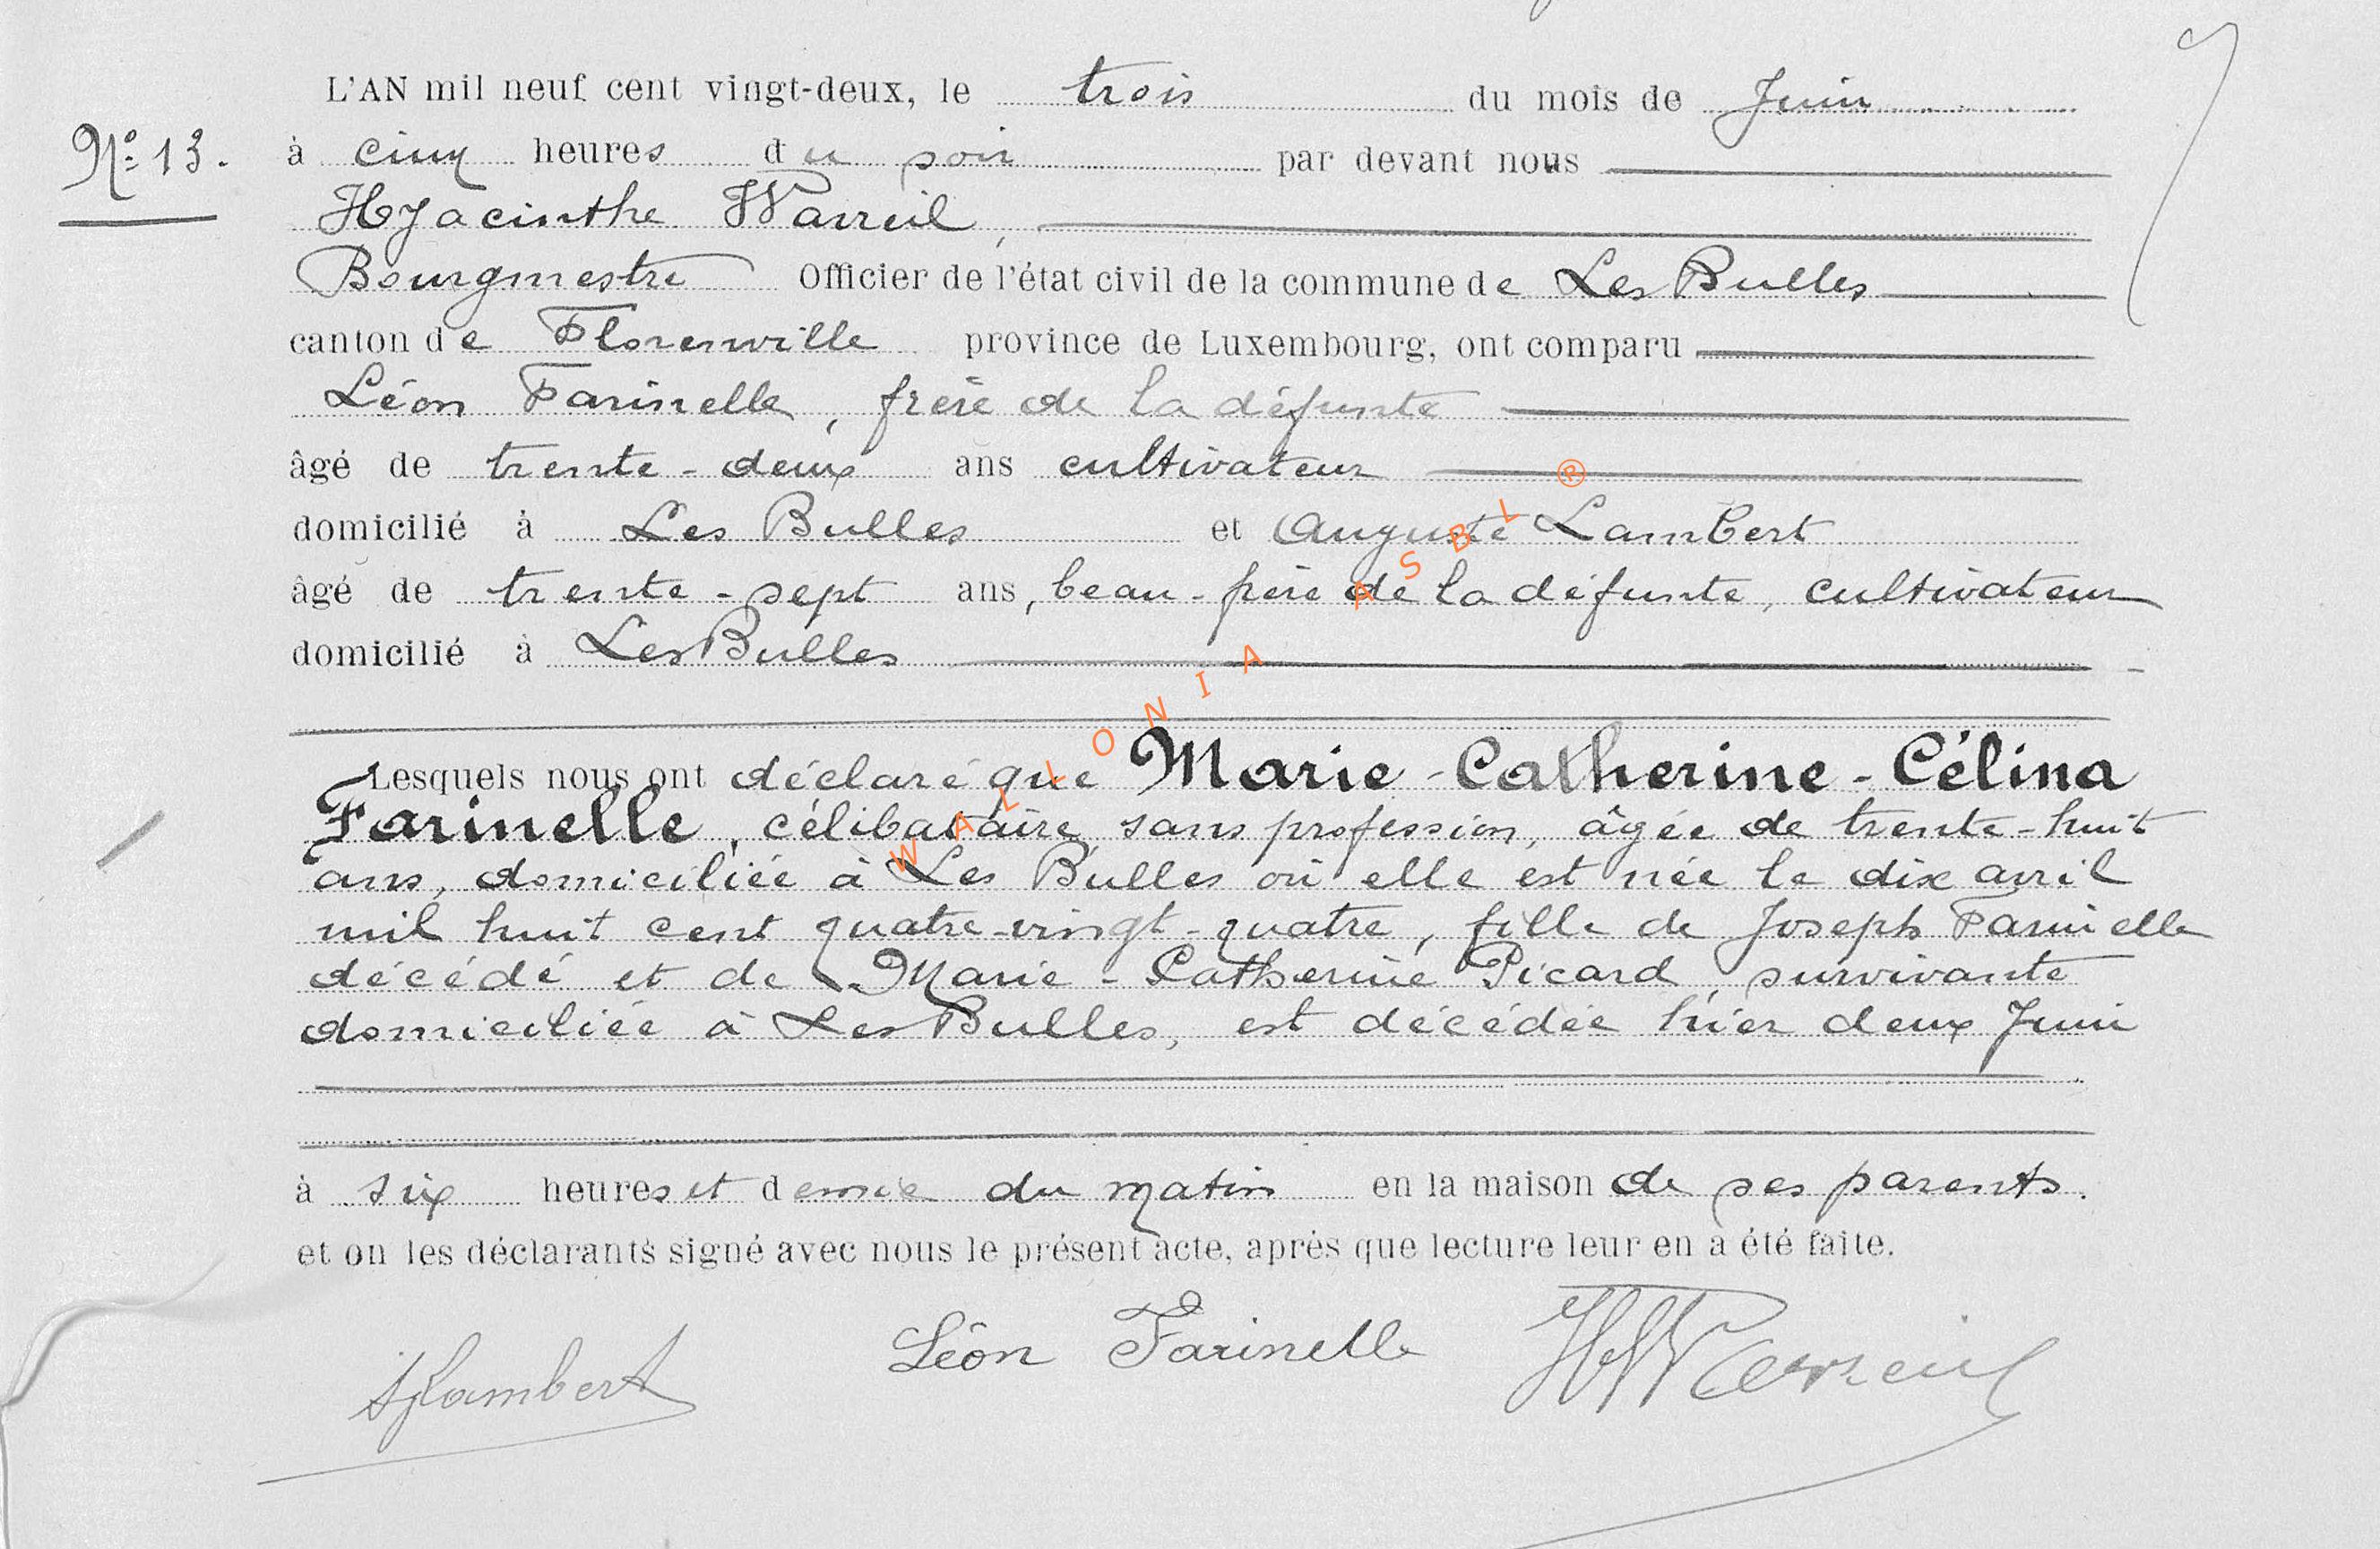 L'AN mil neuf cent vingt-deux, le trois du mois de Juin
N° 13. à cinq heures du soir par devant nous
Hyacinthe Warreil,
Bourgmestre Officier de l'état civil de la commune de Les Bulles
canton de Florenville province de Luxembourg, ont comparu
Léon Farinelle, frère de la défunte
âgé de trente-deux ans cultivateur
domicilié à Les Bulles et Auguste Lambert
âgé de trente-sept ans, beau-frère de la défunte, cultivateur
domicilié à Les Bulles
Lesquels nous ont déclaré que Marie-Catherine-Célina
Farinelle, célibataire, sans profession, âgée de trente-huit
ans, domiciliée à Les Bulles où elle est née le dix avril
mil huit cent quatre-vingt-quatre, fille de Joseph Farinelle
décédé et de Marie-Catherine Picard, survivante
domiciliée à Les Bulles, est décédée hier deux Juin
à six heures et demie du matin en la maison de ses parents.
et on les déclarants signé avec nous le présent acte, après que lecture leur en a été faite.
ALambert Léon Farinelle HWarreil
WALLONIA ASBL ®